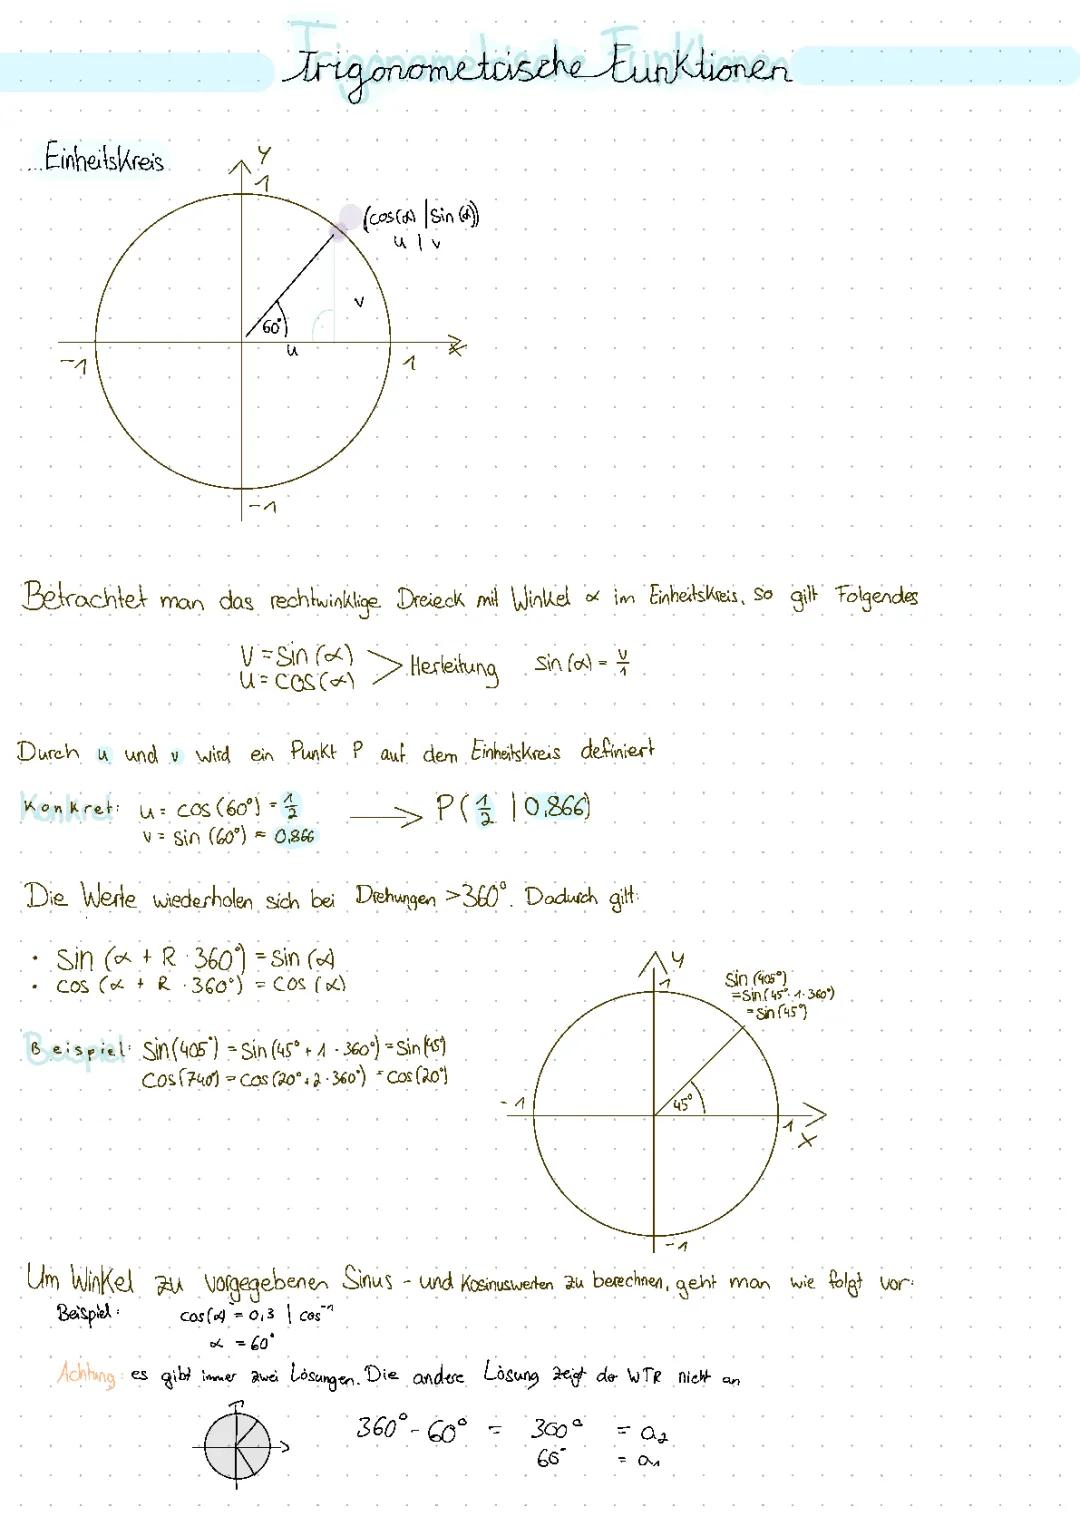 Trigonometrische Funktionen
Einheitskreis
y
1
(cos(α) | sin(α))
u | v
v
60°
u
x
-1
1
-1
Betrachtet man das rechtwinklige Dreieck mit Winkel α im Einheitskreis, so gilt Folgendes
V = sin(α)
u = cos(α)
> Herleitung sin(α) = v/1
Durch u und v wird ein Punkt P auf dem Einheitskreis definiert
Konkret: u = cos(60°) = 1/2 → P(1/2 | 0,866)
v = sin(60°) ≈ 0,866
Die Werte wiederholen sich bei Drehungen >360°. Dadurch gilt:
• sin(α + R · 360°) = sin(α)
• cos(α + R · 360°) = cos(α)
y
1
sin(405°)
= sin(45° · 1 · 360°)
= sin(45°)
Beispiel: sin(405°) = sin(45° + 1 · 360°) = sin(45°)
cos(740°) = cos(20° + 2 · 360°) = cos(20°)
45°
-1
1
x
-1
Um Winkel zu vorgegebenen Sinus- und Kosinuswerten zu berechnen, geht man wie folgt vor:
Beispiel: cos(α) = 0,3 | cos⁻¹
α = 60°
Achtung: es gibt immer zwei Lösungen. Die andere Lösung zeigt der WTR nicht an
360° - 60° = 300° = a₂
60° = a₁